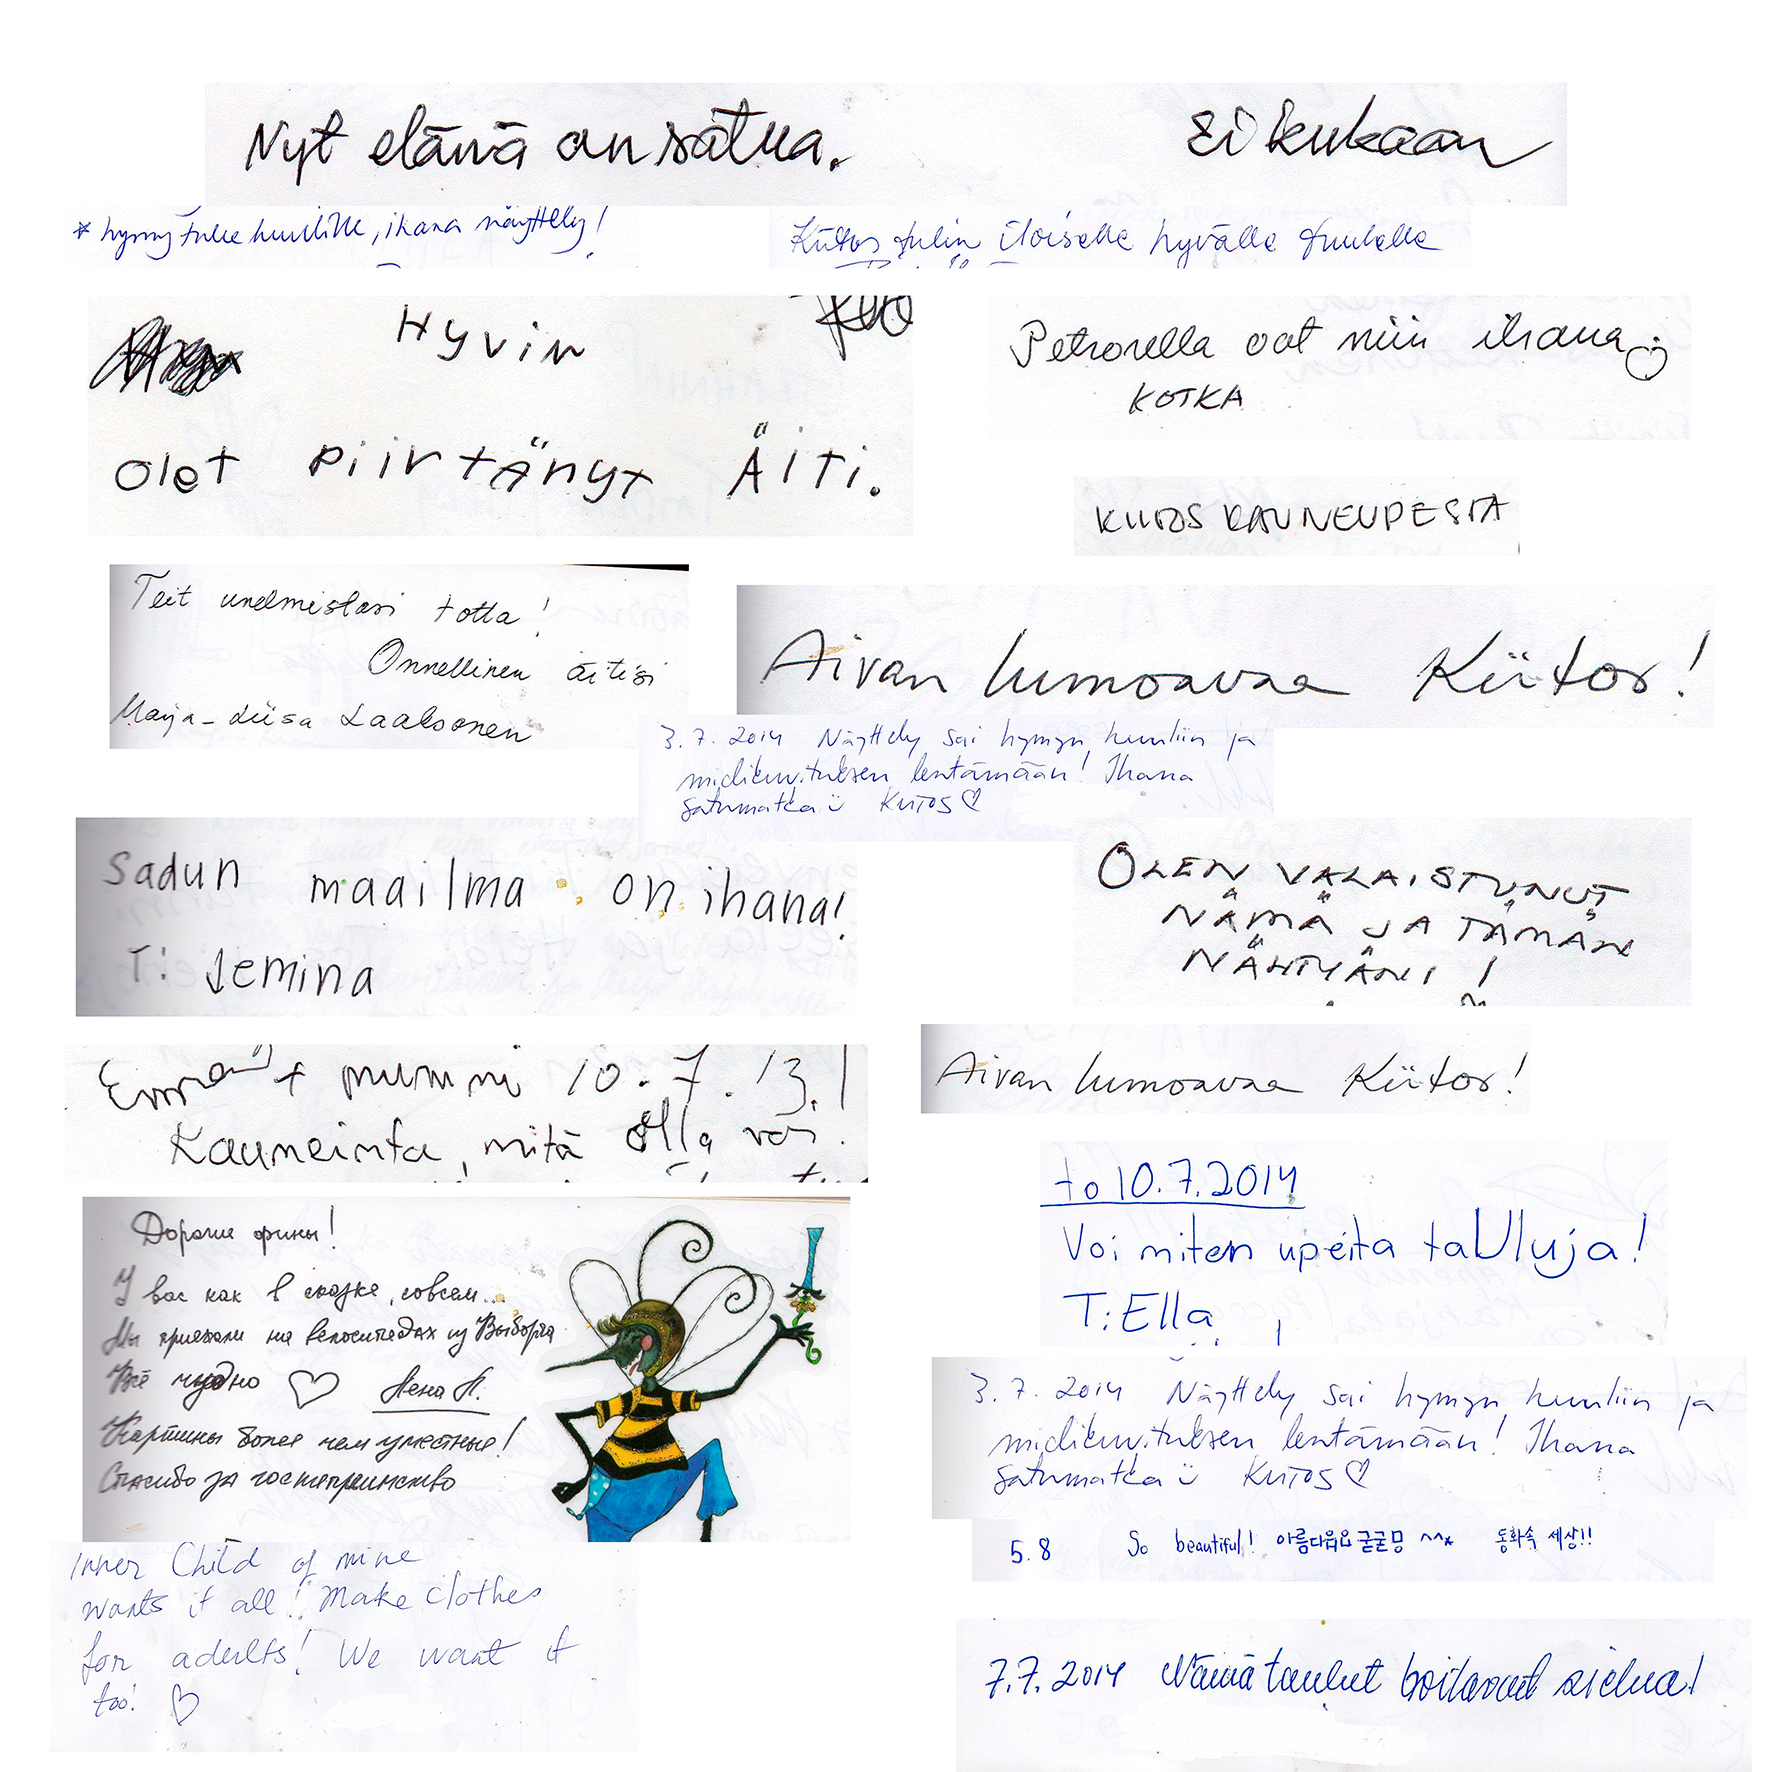 Nyt elämä on satua. Ei kukaan
* hymy tulee huulille, ihana näyttely!
Kiitos tulin iloiselle hyvälle tuulelle
Hyvin
olet piirtänyt Äiti.
Petronella oot niin ihana
KOTKA
KIITOS KAUNEUDESTA
Teit unelmistasi totta!
Onnellinen äitisi
Marja-Liisa Laaksonen
Aivan lumoavaa Kiitos!
3.7.2014 Näyttely sai hymyn huuliin ja
mielikuvituksen lentämään! Ihana
satumatka ü KIITOS ♡
Sadun maailma on ihana!
T: Jemina
OLEN VALAISTUNUT
NÄMÄ JA TÄMÄN
NÄHTYÄNI!
+ mummi 10.7.13.!
Kauneinta, mitä olla voi.
Aivan lumoavaa Kiitos!
to 10.7.2014
Voi miten upeita taUluja!
T: Ella
Дорогие фины!
У вас как в сказке, совсем...
Мы приехали на велосипедах из Выборга
Всё чудно ♡ Лена П.
Картины более чем уместные!
Спасибо за гостеприимство
3.7.2014 Näyttely sai hymyn huuliin ja
mielikuvituksen lentämään! Ihana
satumatka ü KIITOS ♡
5.8 So beautiful! ^^* 동화속 세상!!
Inner Child of mine
wants it all! Make clothes
for adults! We want it
too! ♡
7.7.2014 Nämä taulut hoitavat sielua!